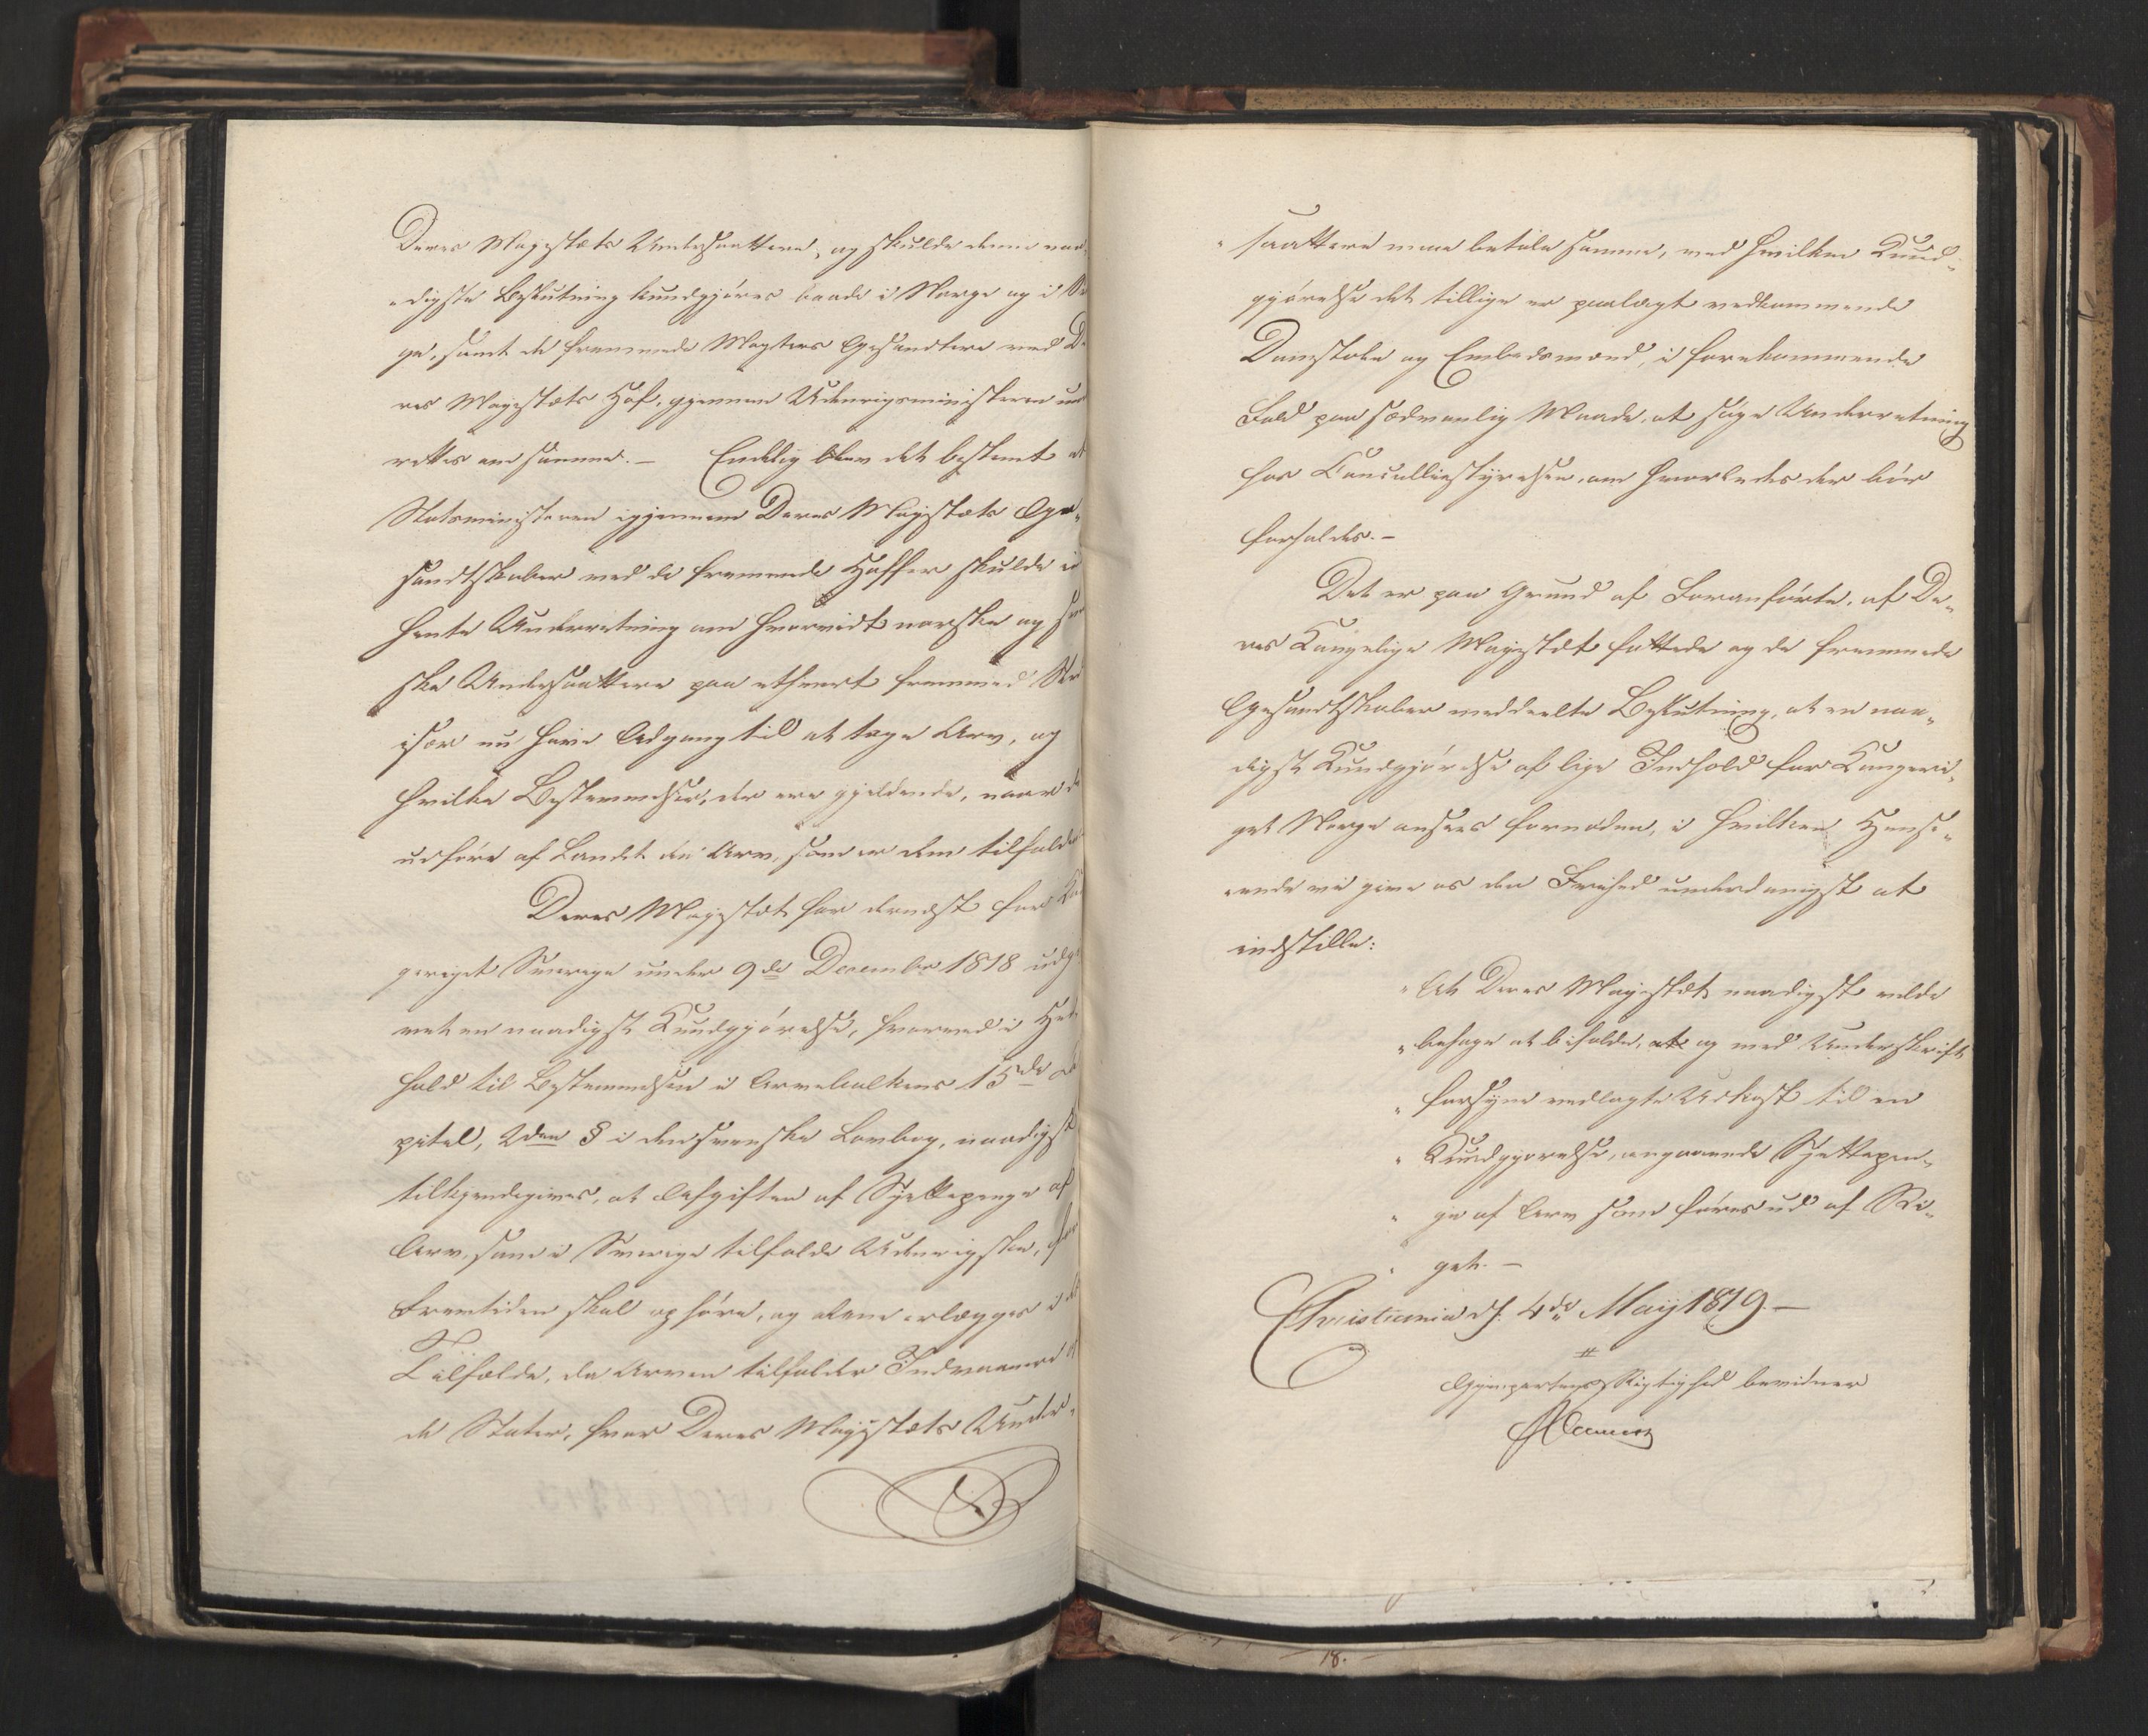 Deres Majestæts Undersaatter, og skulde denne naa-
„digste Beslutning kundgjøres baade i Norge og i Sve
ge, samt de fremmede Magters Gesandtere ved De
res Majestæts Hof, gjennem Udenrigsministeren und
rettes om samme. – Endelig blev det bestemt at
Statsministeren igjennem Deres Majestæts Ge-
sandtskaber ved de fremmede Hoffer skulde ind
hente Underretning om hvorvidt norske og sven
ske Undersaattere paa ethvert fremmed Sted
især nu have Adgang til at tage Arv, og
hvilke Bestemmelser, der ere gjeldende, naar de
udføre af Landet den Arv, som er dem tilfalden
Deres Majestæt har dernæst for Kon
geriget Sverrige under 9de December 1818 udgi
vet en naadigst Kundgjørelse, hvorved i Hen
hold til Bestemmelsen i Arvebalkens 15de Ca
pitel, 2den § i den svenske Lovbog, naadigst
tilkjendegives, at Afgiften af Sjettepenge af
Arv, som i Sverige tilfalde Udenrigske, for
Fremtiden skal ophøre, og alene erlægges i de
Tilfælde, da Arven tilfalder Indvaanere af
de Stater, hvor Deres Majestæts Under-
„saattere maae betale samme, ved hvilken Kund-
gjørelse det tillige er paalagt vedkommende
Domstole og Embedsmænd, i forekommende
Fald paa sædvanlig Maade, at søge Underretning
hos Cancelliestyrelsen, om hvorledes der bør
forholdes. –
Det er paa Grund af Foranførte, af De-
res Kongelige Majestæt fattede og de fremmede
Gesandtskaber meddeelte Beslutning, at en naa-
digst Kundgjørelse af lige Indhold for Kongeri-
get Norge ansees fornøden, i hvilken Hense-
„ende vi give os den Frihed underdanigst at
indstille:
„At Deres Majestæt naadigst vilde
„behage at bifalde, at og med Underskrift
„forsyne vedlagte Udkast til en
„Kundgjørelse, angaaende Sjettepen-
„ge af Arv som føres ud af Ri-
„get. –
Christiania d. 4de Maij 1819. –
#
Gjenpartens Rigtighed bevidner
18.